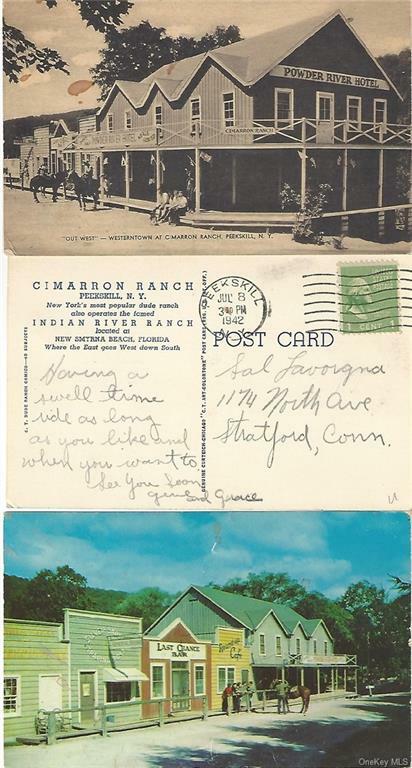 POWDER RIVER HOTEL
CIMARRON RANCH
"OUT WEST" — WESTERNTOWN AT CIMARRON RANCH, PEEKSKILL, N. Y.
CIMARRON RANCH
PEEKSKILL, N. Y.
New York's most popular dude ranch
also operates the famed
INDIAN RIVER RANCH
located at
NEW SMYRNA BEACH, FLORIDA
Where the East goes West down South
C. T. DUDE RANCH COMICS—40 SUBJECTS
GENUINE CURTEICH-CHICAGO "C. T. ART-COLORTONE" POST CARD (REG. U. S. PAT. OFF.)
PEEKSKILL
JUL 8
PM
1942
N.Y.
POST CARD
Having a
swell time
ride as long
as you like and
when you want to
See You Soon
and Grace
Sal Lavorgna
1174 North Ave
Stratford, Conn.
LAST CHANCE
BAR
Cafe
OneKey MLS